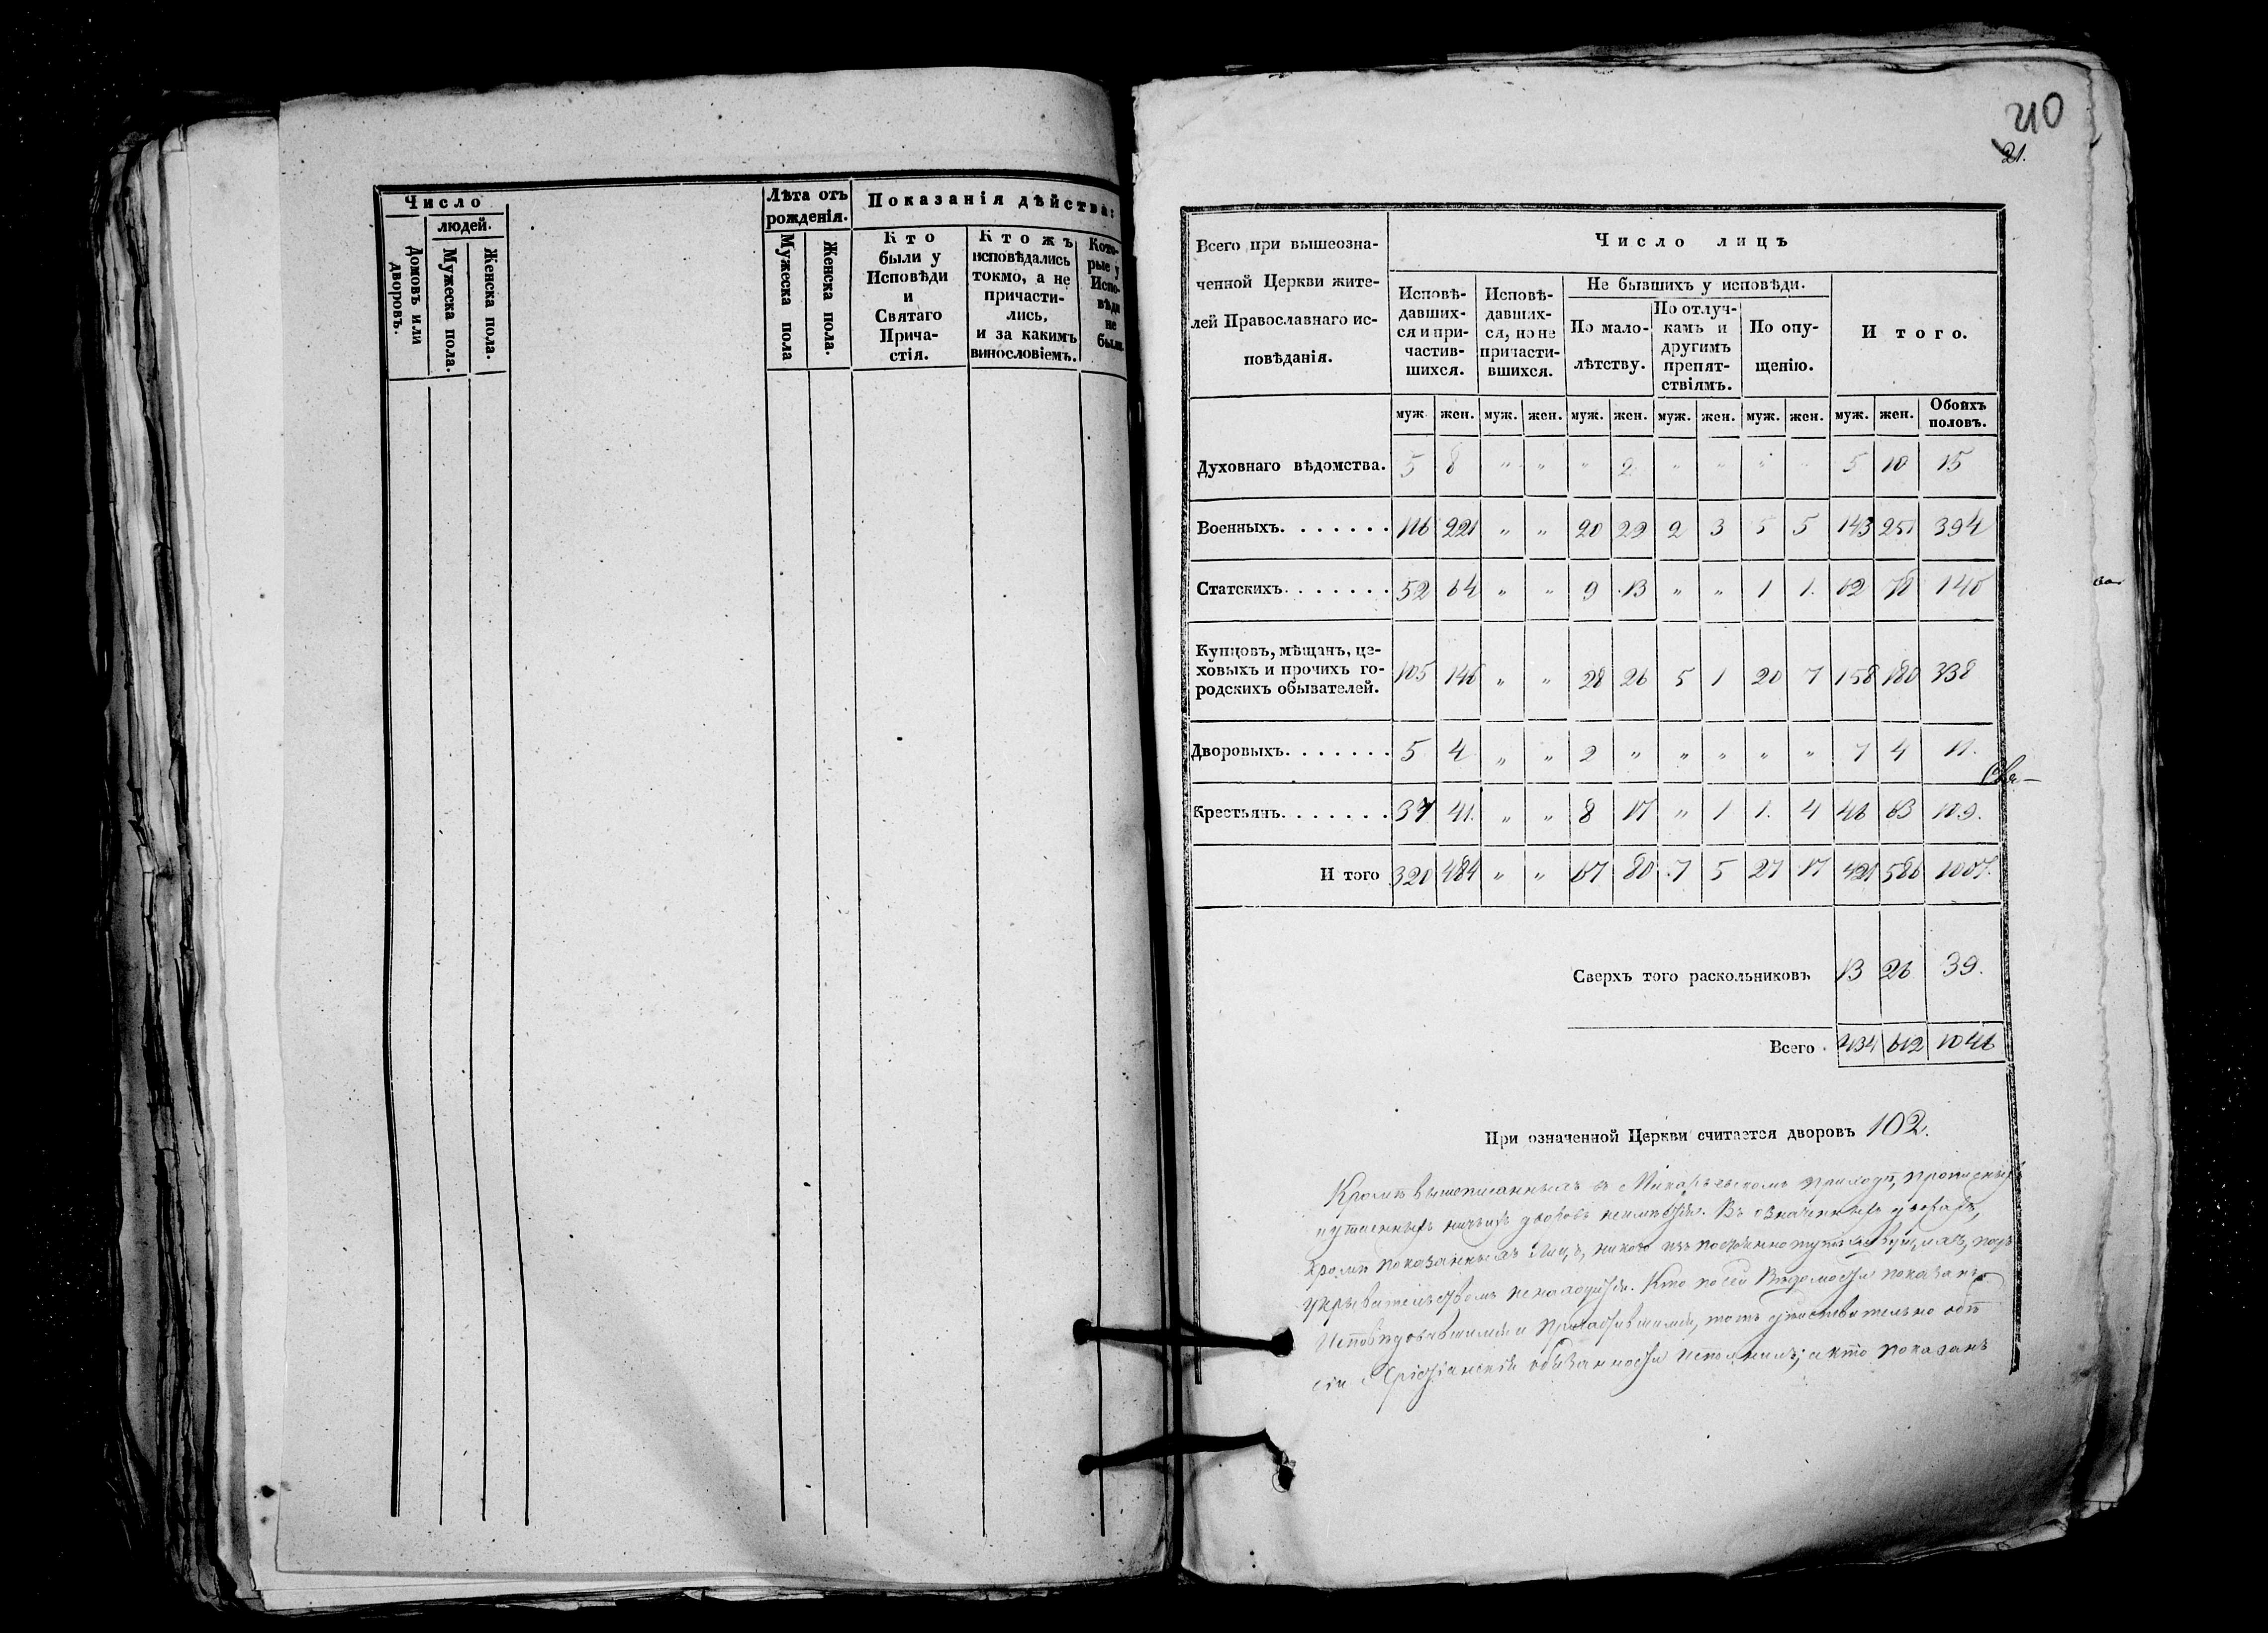 Число
людей.
Домовъ или дворовъ.
Мужеска пола.
Женска пола.
Лѣта отъ
рожденія.
Мужеска пола
Женска пола.
Показанія дѣйства:
Кто
были у
Исповѣди
и
Святаго
Прича-
стія.
Кто жъ
исповѣдались
токмо, а не
причасти-
лись,
и за какимъ
винословіемъ.
Кото-
рые у
Испо-
вѣди
не
были.
210
21.
Всего при вышеозна-
ченной Церкви жите-
лей Православнаго ис-
повѣданія.
Число лицъ
Исповѣ-
давших-
ся и при-
частив-
шихся.
Исповѣ-
давших-
ся, но не
причасти-
вшихся.
Не бывшихъ у исповѣди.
По мало-
лѣтству.
По отлуч-
камъ и
другимъ
препят-
ствіямъ.
По опу-
щенію.
И того.
муж. жен. муж. жен. муж. жен. муж. жен. муж. жен. муж. жен. Обоихъ половъ.
Духовнаго вѣдомства. 5 8 " " " 2 " " " " 5 10 15
Военныхъ. . . . . . . 116 221 " " 20 22 2 3 5 5 143 251 394
Статскихъ. . . . . . . 52 64 " " 9 13 " " 1 1. 62 78 140
Купцовъ, мѣщанъ, це-
ховыхъ и прочихъ го-
родскихъ обывателей. 105 146 " " 28 26 5 1 20 7 158 180 338
Дворовыхъ. . . . . . . 5 4 " " 2 " " " " " 7 4 11.
Крестьянъ. . . . . . . 37 41. " " 8 17 " 1 1. 4 46 63 109.
И того 320 484 " " 67 80 7 5 27 17 421 586 1007.
Сверхъ того раскольниковъ 13 26 39.
Всего 434 612 1046
При означенной Церкви считается дворовъ 102.
Кромѣ вышеписанныхъ въ приходѣ,
дворовъ неимѣется. Въ означенныхъ дворахъ,
кромѣ показанныхъ лицъ, никого изъ
укрывательствомъ ненаходится. Кто по сей Вѣдомости показанъ
Исповѣдовавшимся и Причастившимся, тотъ дѣйствительно обѣ
сіи Христіанскія обязанности исполнилъ; а кто показанъ